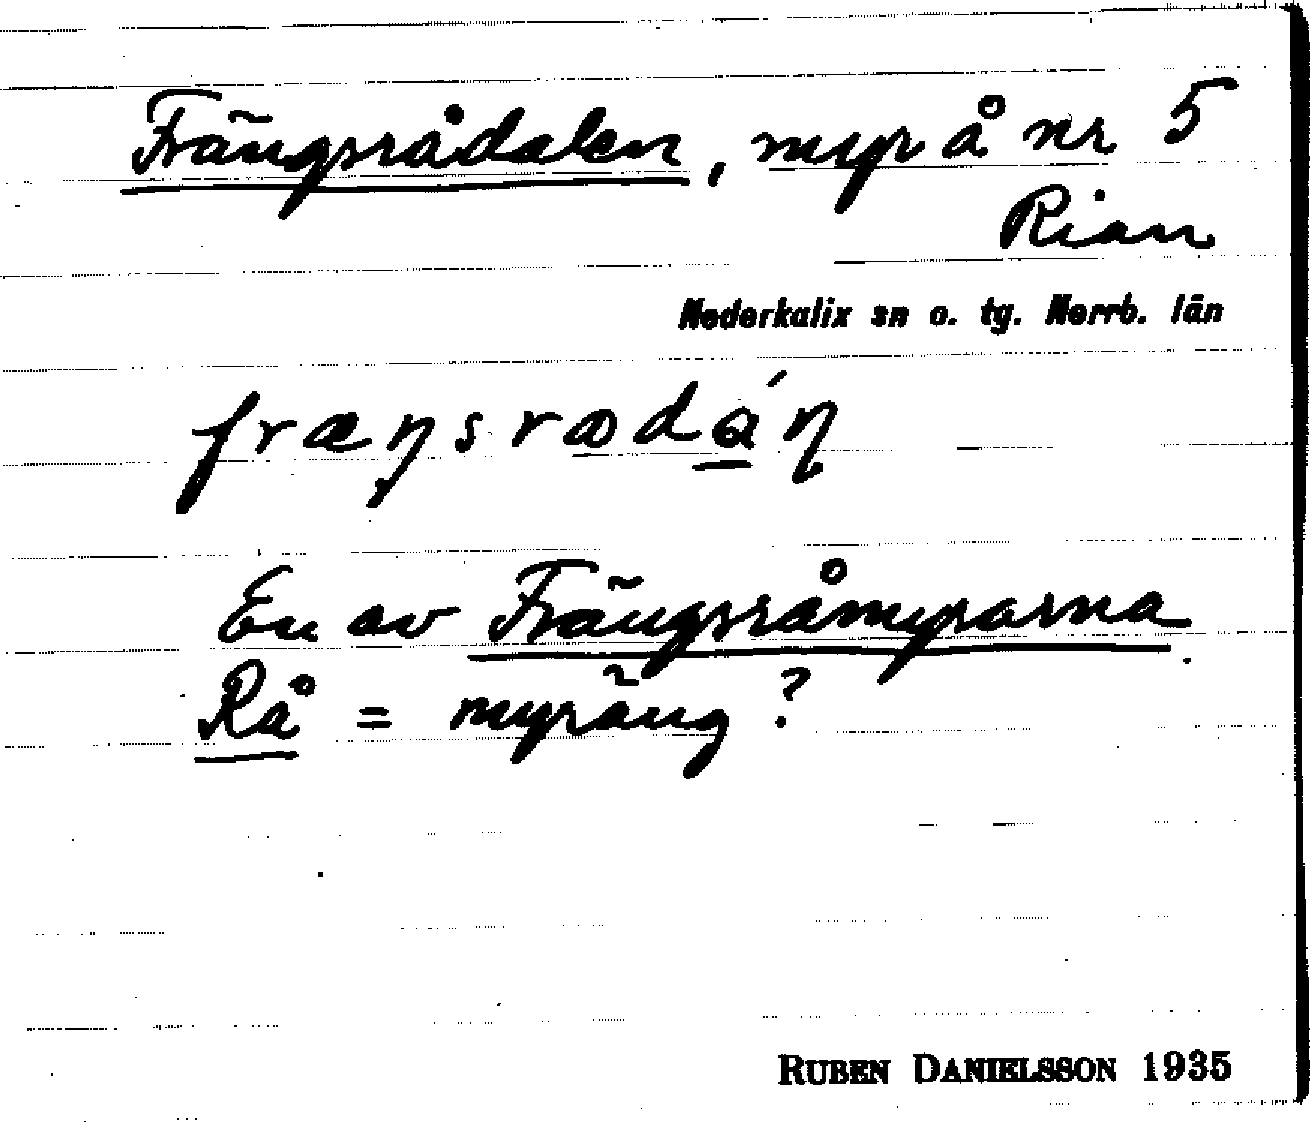 Frängsrådalen, myr å nr 5
Rian
Nederkalix sn o. tg. Norrb. län
fræŋsrɷdáŋ
En av Frängsråmyrarna
Rå = myräng?
RUBEN DANIELSSON 1935